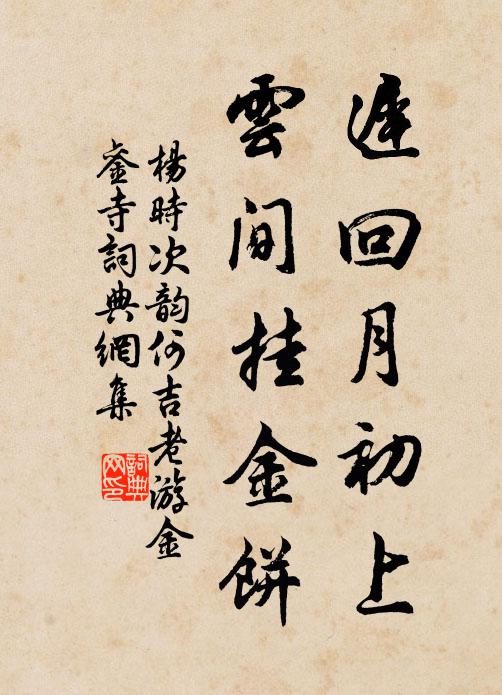 遲回月初上
雲間挂金餅
楊時次韵何吉老游金
銮寺詞典網集
詞典
网印